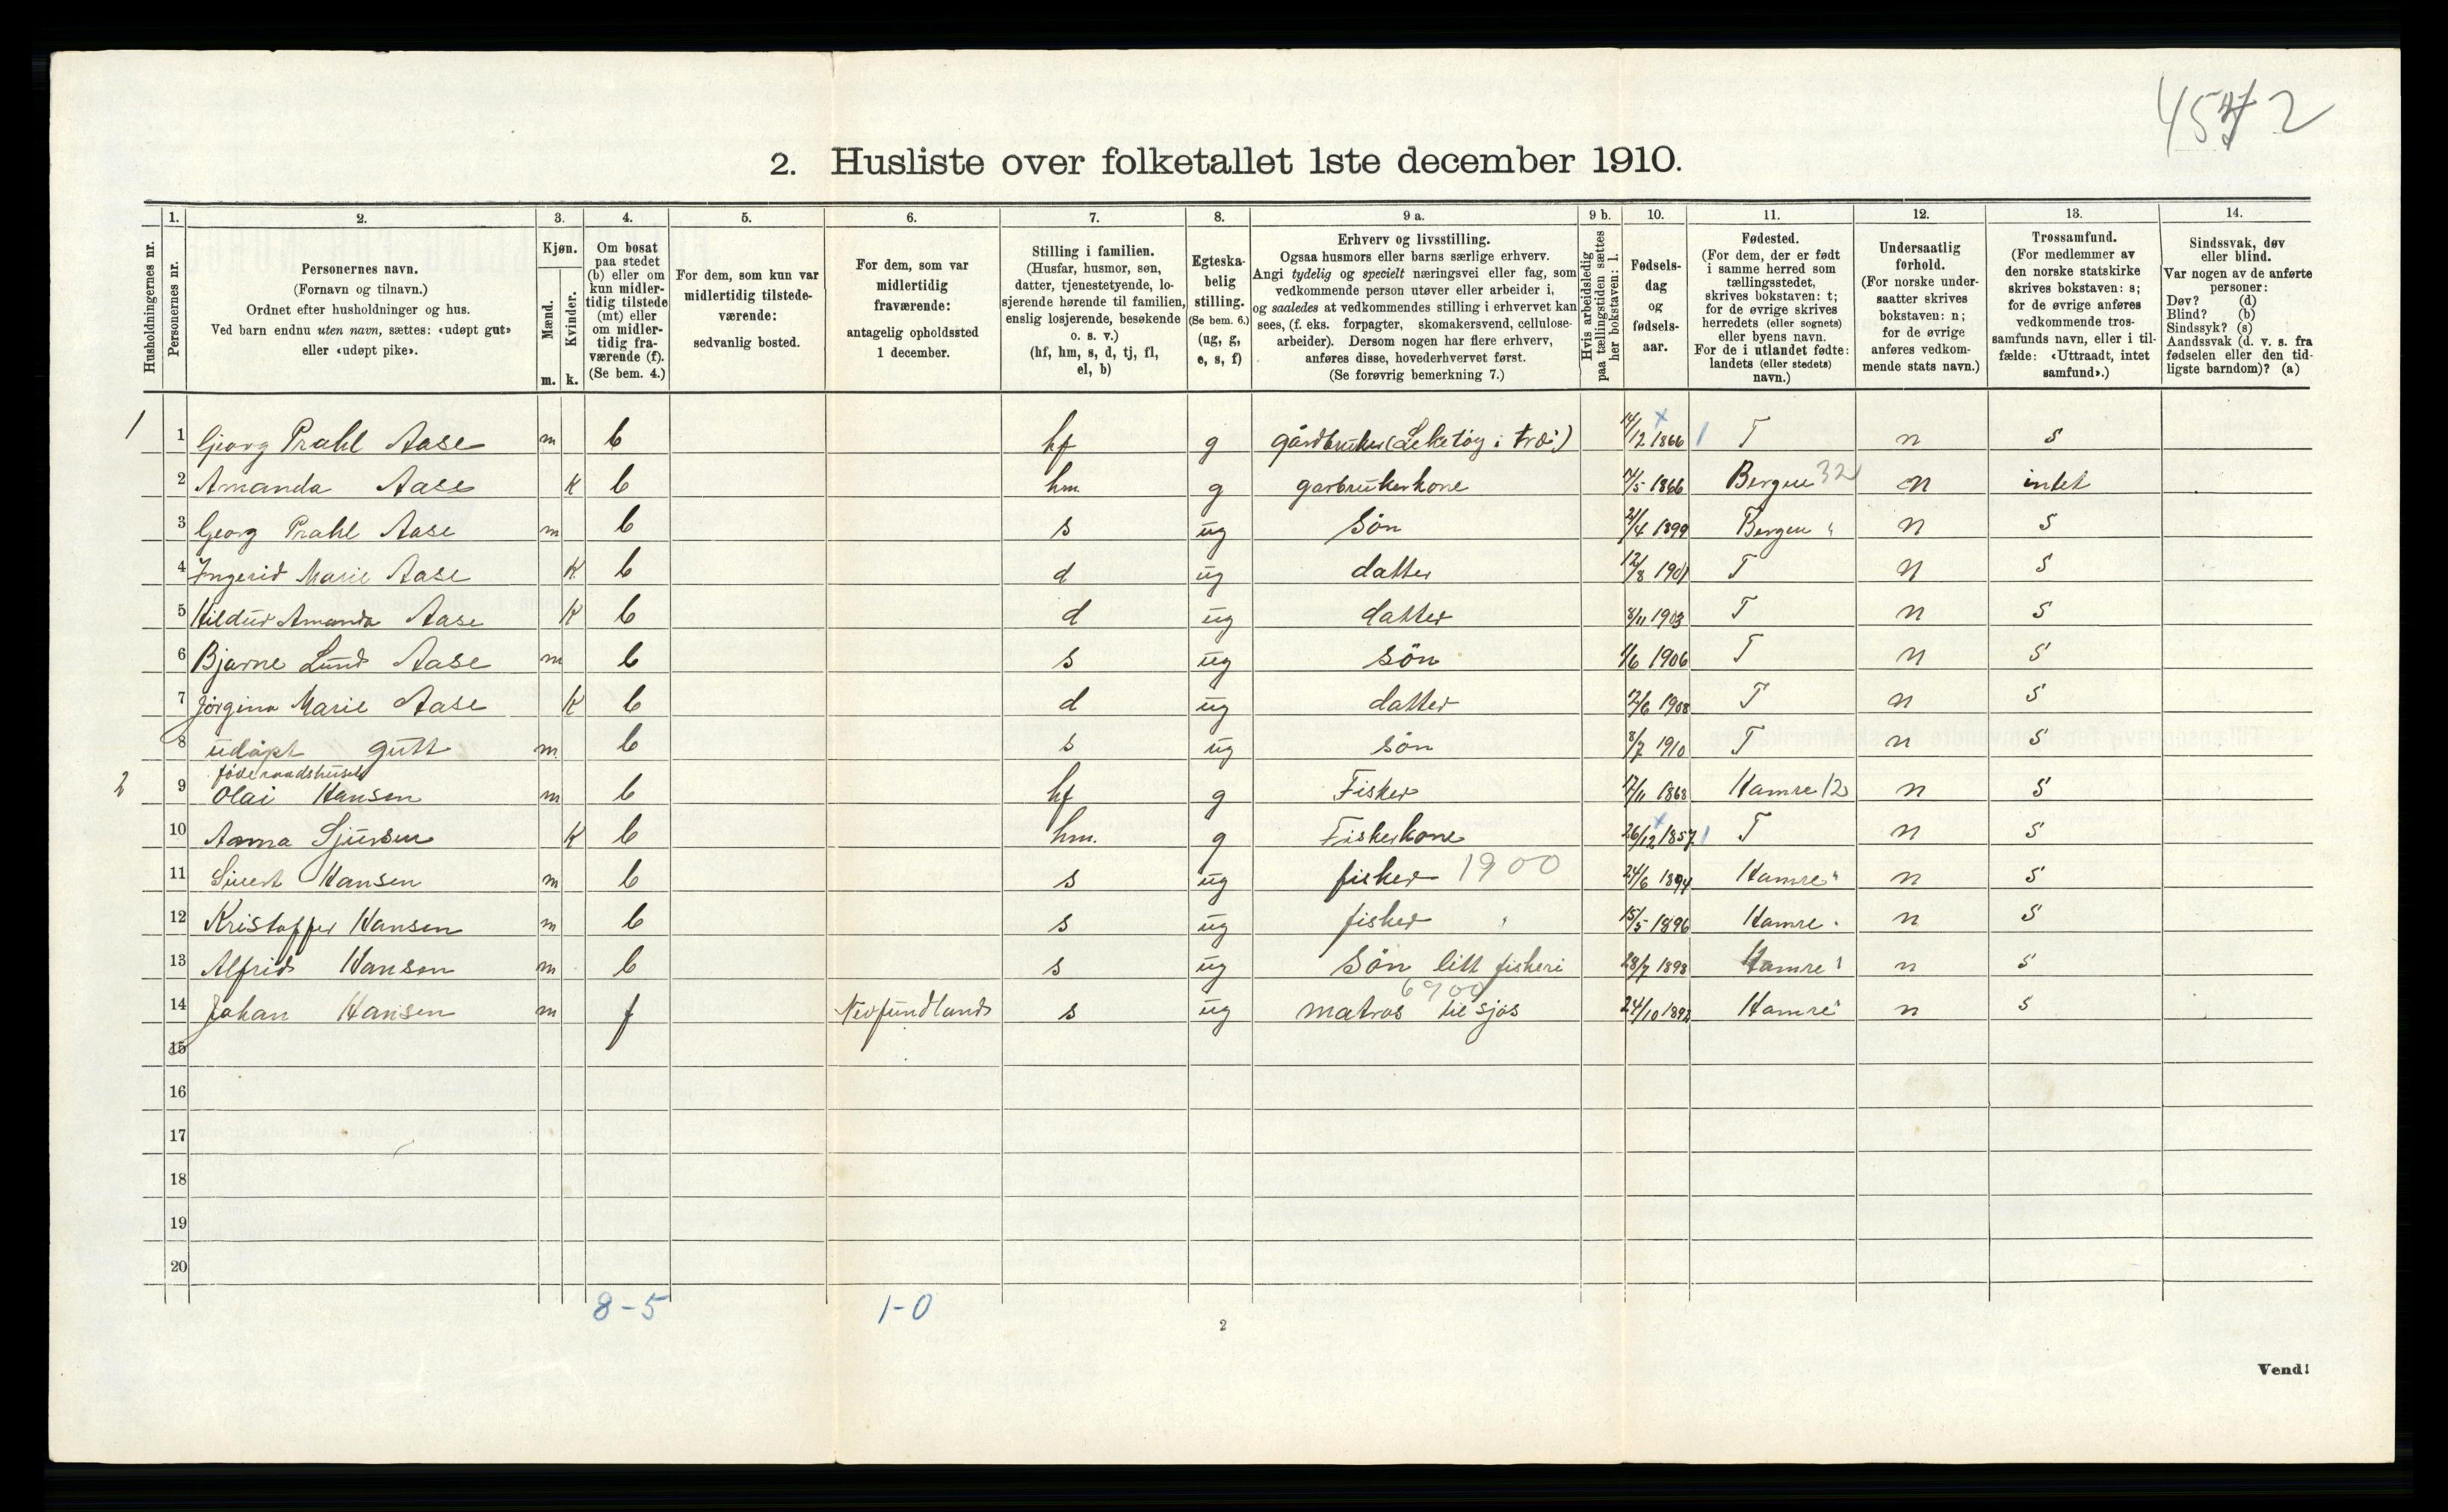 4572
2. Husliste over folketallet 1ste december 1910.
Husholdningernes nr.
1. Personernes nr.
2. Personernes navn. (Fornavn og tilnavn.) Ordnet efter husholdninger og hus. Ved barn endnu uten navn, sættes: «udøpt gut» eller «udøpt pike».
3. Kjøn. Mænd. m. Kvinder. k.
4. Om bosat paa stedet (b) eller om kun midler-tidig tilstede (mt) eller om midler-tidig fra-værende (f). (Se bem. 4.)
5. For dem, som kun var midlertidig tilstede-værende: sedvanlig bosted.
6. For dem, som var midlertidig fraværende: antagelig opholdssted 1 december.
7. Stilling i familien. (Husfar, husmor, søn, datter, tjenestetyende, lo-sjerende hørende til familien, enslig losjerende, besøkende o. s. v.) (hf, hm, s, d, tj, fl, el, b)
8. Egteska-belig stilling. (Se bem. 6.) (ug, g, e, s, f)
9 a. Erhverv og livsstilling. Ogsaa husmors eller barns særlige erhverv. Angi tydelig og specielt næringsvei eller fag, som vedkommende person utøver eller arbeider i, og saaledes at vedkommendes stilling i erhvervet kan sees, (f. eks. forpagter, skomakersvend, cellulose-arbeider). Dersom nogen har flere erhverv, anføres disse, hovederhvervet først. (Se forøvrig bemerkning 7.)
9 b. Hvis arbeidsledig paa tællingstiden sættes her bokstaven: l.
10. Fødsels-dag og fødsels-aar.
11. Fødested. (For dem, der er født i samme herred som tællingsstedet, skrives bokstaven: t; for de øvrige skrives herredets (eller sognets) eller byens navn. For de i utlandet fødte: landets (eller stedets) navn.)
12. Undersaatlig forhold. (For norske under-saatter skrives bokstaven: n; for de øvrige anføres vedkom-mende stats navn.)
13. Trossamfund. (For medlemmer av den norske statskirke skrives bokstaven: s; for de øvrige anføres vedkommende tros-samfunds navn, eller i til-fælde: «Uttraadt, intet samfund».)
14. Sindssvak, døv eller blind. Var nogen av de anførte personer: Døv? (d) Blind? (b) Sindssyk? (s) Aandssvak (d. v. s. fra fødselen eller den tid-ligste barndom)? (a)
1 1 Georg Prahl Aase m b hf g gårdbruker (Leketøy i træ) 14/12 1866 T n s
2 Amanda Aase K b hm. g garbrukerkone 4/5 1866 Bergen 32 n intet
3 Georg Prahl Aase m b s ug Søn 2/4 1899 Bergen " n s
4 Ingerid Marie Aase K b d ug datter 12/8 1901 T n s
5 Hildur Amanda Aase K b d ug datter 8/11 1903 T n s
6 Bjarne Lund Aase m b s ug søn 1/6 1906 T n s
7 Jørgina Marie Aase K b d ug datter 2/6 1908 T n s
8 udøpt gutt m. b s ug søn 8/7 1910 T n s
føderaadshuset
2 9 Olai Hansen m b hf g Fisker 17/11 1868 Hamre 12 n s
10 Anna Sjursen K b hm. g Fiskerkone 26/12 1857 T n s
11 Sivert Hansen m b s ug fisker 1900 24/6 1894 Hamre " n s
12 Kristoffer Hansen m b s ug fisker " 15/5 1896 Hamre " n s
13 Alfrid Hansen m b s ug Søn litt fiskeri 28/7 1898 Hamre " n s
6900
14 Johan Hansen m f Nevfundland s ug matros til sjøs 24/10 1892 Hamre " n s
15
16
17
18
19
20
8-5 1-0
2
Vend!